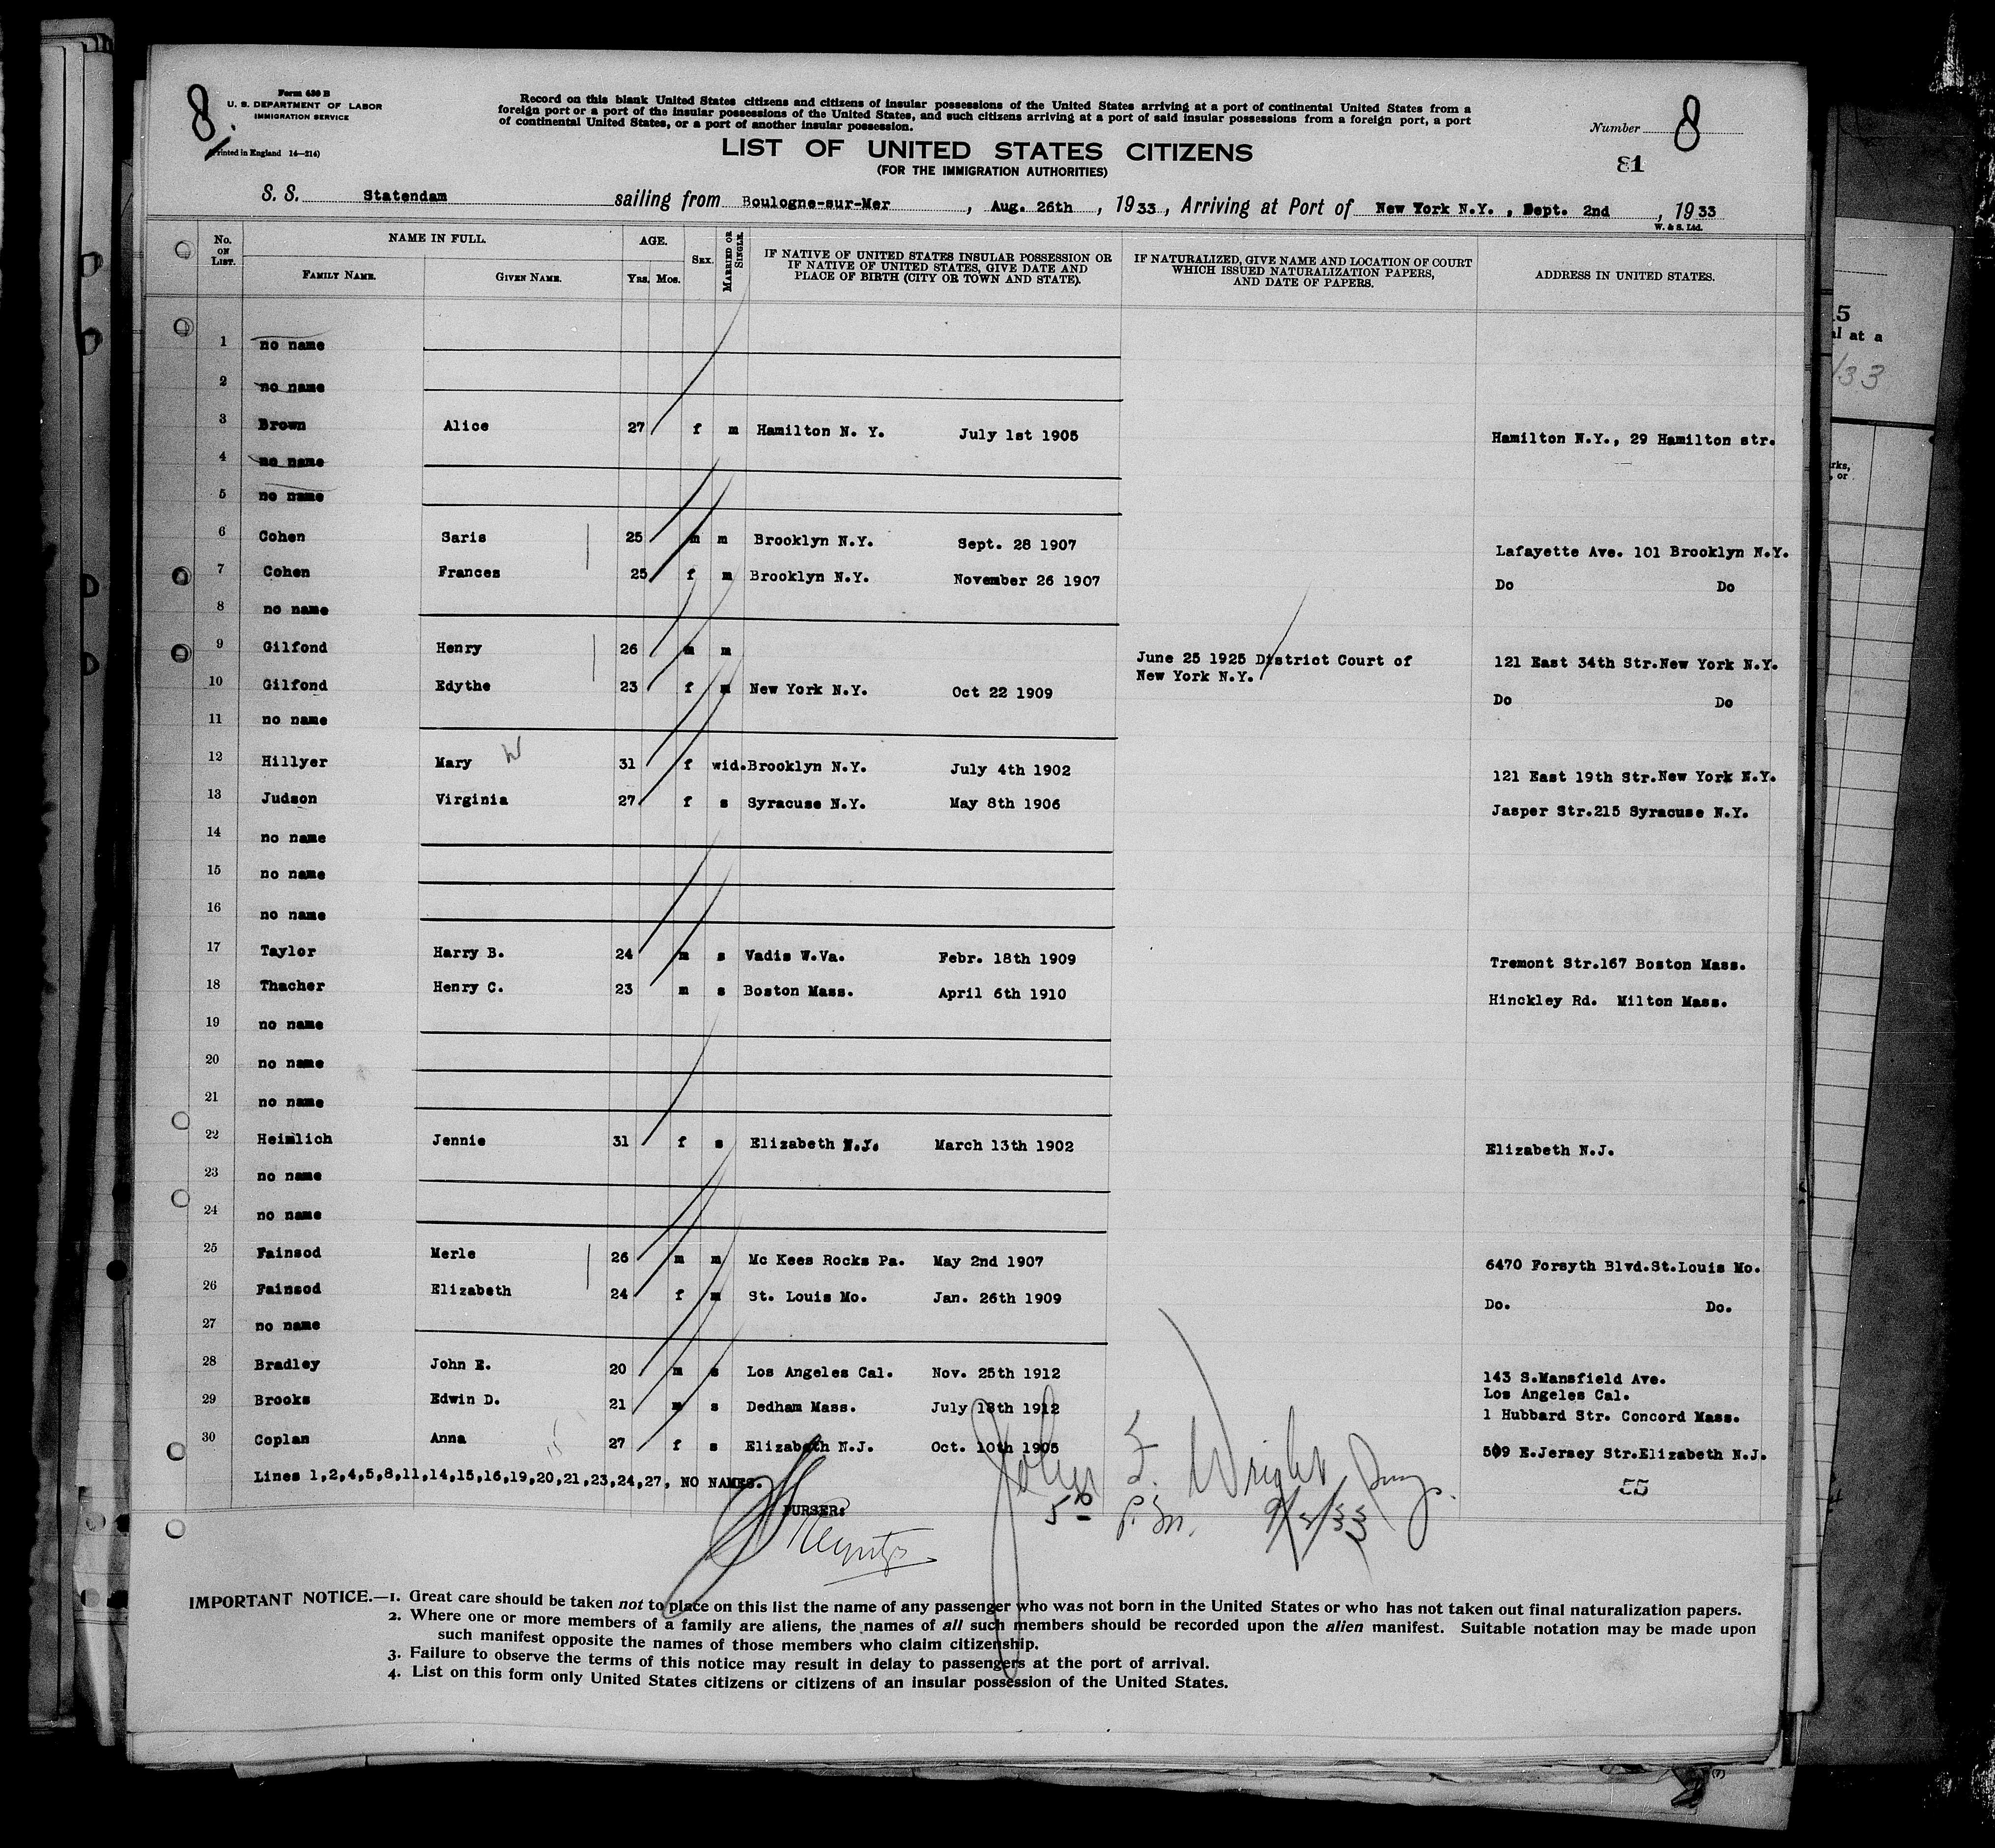 8.
Form 630 B
U. S. DEPARTMENT OF LABOR
IMMIGRATION SERVICE
(Printed in England 14—214)
Record on this blank United States citizens and citizens of insular possessions of the United States arriving at a port of continental United States from a
foreign port or a port of the insular possessions of the United States, and such citizens arriving at a port of said insular possessions from a foreign port, a port
of continental United States, or a port of another insular possession.
LIST OF UNITED STATES CITIZENS
(FOR THE IMMIGRATION AUTHORITIES)
Number 8
81
S. S. Statendam sailing from Boulogne-sur-Mer, Aug. 26th, 1933, Arriving at Port of New York N.Y., Sept. 2nd, 1933
W. & S. Ltd.
No. ON LIST. NAME IN FULL. FAMILY NAME. GIVEN NAME. AGE. Yrs. Mos. SEX. MARRIED OR SINGLE. IF NATIVE OF UNITED STATES INSULAR POSSESSION OR IF NATIVE OF UNITED STATES, GIVE DATE AND PLACE OF BIRTH (CITY OR TOWN AND STATE). IF NATURALIZED, GIVE NAME AND LOCATION OF COURT WHICH ISSUED NATURALIZATION PAPERS, AND DATE OF PAPERS. ADDRESS IN UNITED STATES.
1 no name
2 no name
3 Brown Alice 27 f m Hamilton N. Y. July 1st 1905 Hamilton N.Y., 29 Hamilton str.
4 no name
5 no name
6 Cohen Saris 25 m m Brooklyn N.Y. Sept. 28 1907 Lafayette Ave. 101 Brooklyn N.Y.
7 Cohen Frances 25 f m Brooklyn N.Y. November 26 1907 Do Do
8 no name
9 Gilfond Henry 26 m m June 25 1925 District Court of New York N.Y. 121 East 34th Str.New York N.Y.
10 Gilfond Edythe 23 f m New York N.Y. Oct 22 1909 Do Do
11 no name
12 Hillyer Mary W 31 f wid. Brooklyn N.Y. July 4th 1902 121 East 19th Str.New York N.Y.
13 Judson Virginia 27 f s Syracuse N.Y. May 8th 1906 Jasper Str.215 Syracuse N.Y.
14 no name
15 no name
16 no name
17 Taylor Harry B. 24 m s Vadis W.Va. Febr. 18th 1909 Tremont Str.167 Boston Mass.
18 Thacher Henry C. 23 m s Boston Mass. April 6th 1910 Hinckley Rd. Milton Mass.
19 no name
20 no name
21 no name
22 Heimlich Jennie 31 f s Elizabeth N.J. March 13th 1902 Elizabeth N.J.
23 no name
24 no name
25 Fainsod Merle 26 m m Mc Kees Rocks Pa. May 2nd 1907 6470 Forsyth Blvd.St.Louis Mo.
26 Fainsod Elizabeth 24 f m St. Louis Mo. Jan. 26th 1909 Do. Do.
27 no name
28 Bradley John E. 20 m s Los Angeles Cal. Nov. 25th 1912 143 S.Mansfield Ave. Los Angeles Cal.
29 Brooks Edwin D. 21 m s Dedham Mass. July 18th 1912 1 Hubbard Str. Concord Mass.
30 Coplan Anna 27 f s Elizabeth N.J. Oct. 10th 1905 509 E.Jersey Str.Elizabeth N.J.
Lines 1,2,4,5,8,11,14,15,16,19,20,21,23,24,27, NO NAMES.
55
PURSER:
John F. Wright
P.M. 9/2/33
IMPORTANT NOTICE.—1. Great care should be taken not to place on this list the name of any passenger who was not born in the United States or who has not taken out final naturalization papers.
2. Where one or more members of a family are aliens, the names of all such members should be recorded upon the alien manifest. Suitable notation may be made upon
such manifest opposite the names of those members who claim citizenship.
3. Failure to observe the terms of this notice may result in delay to passengers at the port of arrival.
4. List on this form only United States citizens or citizens of an insular possession of the United States.